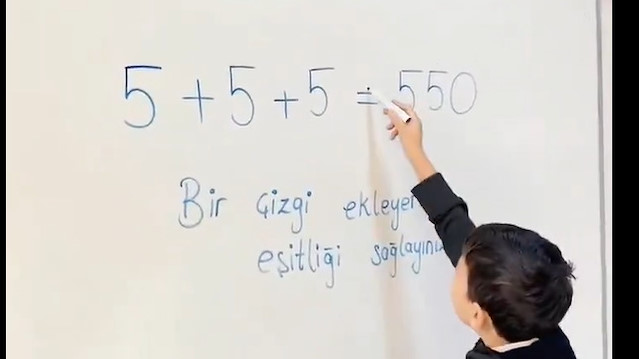 5+5+5=550
Bir çizgi ekleyer
eşitliği sağlayınız